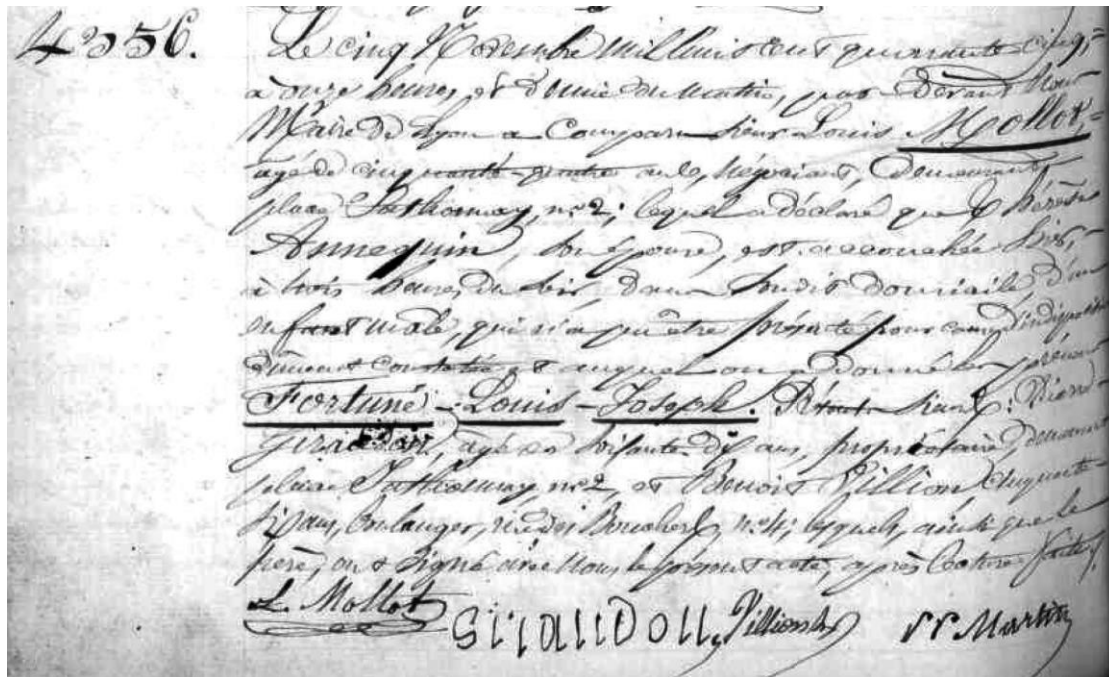 4356.
Le cinq Novembre mil huit cent quarante cinq,=
à onze heures et demie du matin, par devant Nous
Maire de Lyon a Comparu Sieur Louis Mollot,=
âgé de cinquante-quatre ans, Négociant, Demeurant
place Sathonay, n.º 2; lequel a déclaré que Thérèse
Annequin, Son épouse, est accouchée hier,
à trois heures du soir dans Son dit domicile, d'un
enfant mâle, qui n'a pu être présenté pour cause d'indisposition
dûment constatée et auquel on a Donné les prénoms
Fortuné-Louis-Joseph. Présents Sieurs:
Giraudon, âgé de Soixante-dix ans, propriétaire, demeurant
place Sathonay, n.º 2, et Benoit Villion, Cinquante-
Six ans, boulanger, rue des Bouchers, n.º 4; lesquels, ainsi que le
père, ont Signé avec Nous le présent acte, après lecture faite.
L. Mollot
Giraudon
Villion
Martin